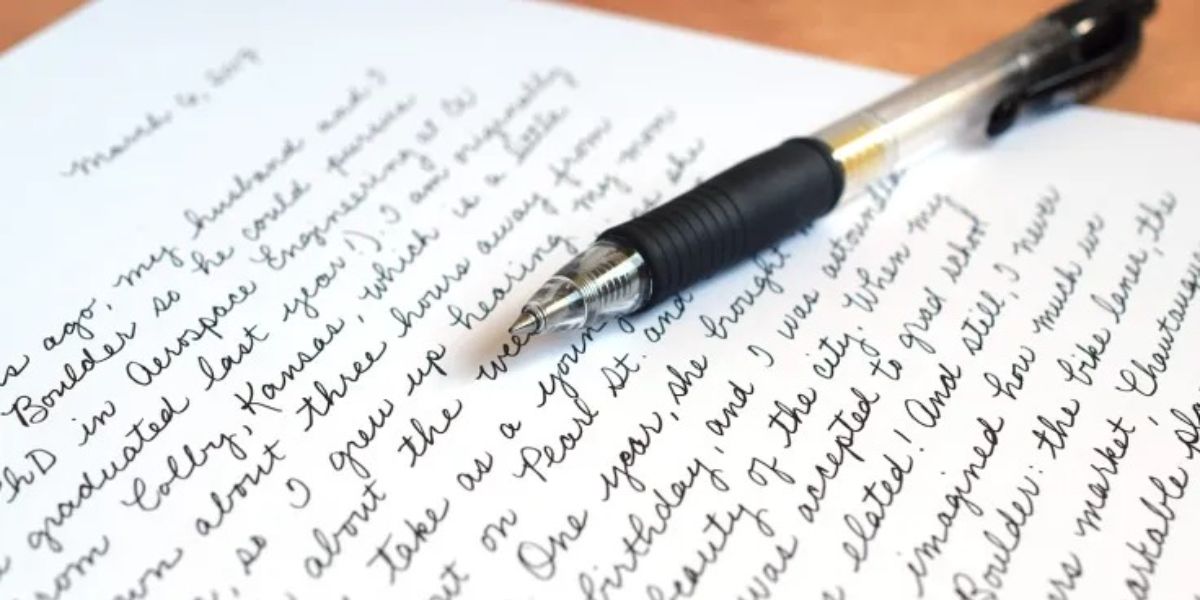 March
s ago, my husband and I
Boulder so he could pursue
PhD in Aerospace Engineering at CU
graduated last year!). I am originally
from Colby, Kansas, which is a little
own about three hours away from
, so I grew up hearing my mom
about the wee she
take as a young
out on Pearl St. and
One year, she brought
birthday, and I was astounded
beauty of the city. When my
was accepted to grad school
elated! And still, I never
imagined how much we
Boulder: the bike lanes, the
ers market, Chautauqua
arkable pla